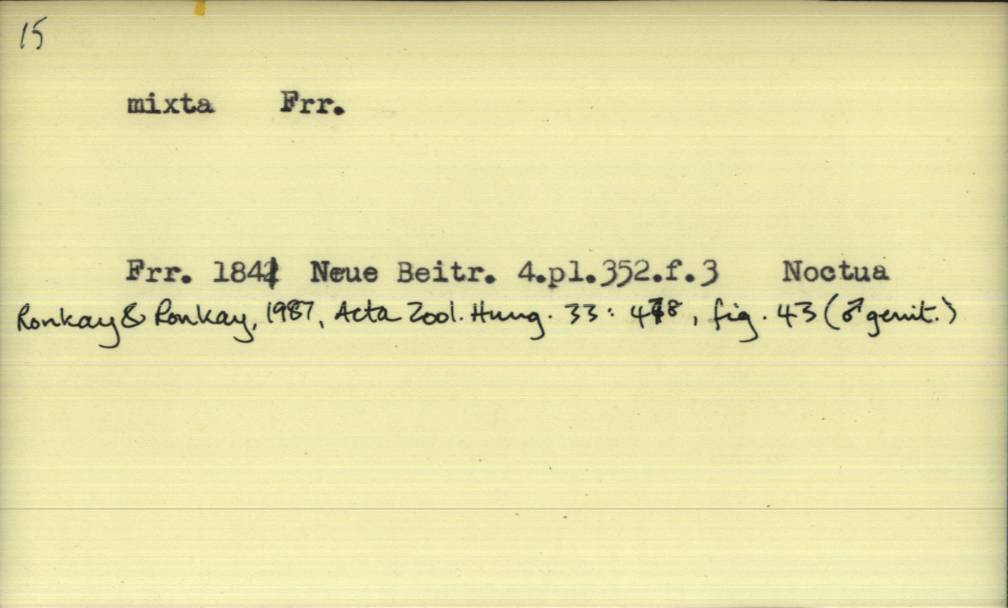 15
mixta Frr.
Frr. 1841 Neue Beitr. 4.pl.352.f.3 Noctua
Ronkay & Ronkay, 1987, Acta Zool. Hung. 33: 478, fig. 43 (♂ genit.)